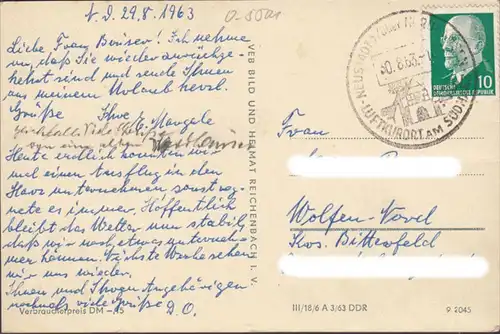 N.D. 29.8.1963
Liebe Frau ! Ich nehme
an, daß Sie wieder zurückge-
kehrt sind und sende Ihnen
aus meinem Urlaub herzl.
Grüße Ihre
Viele
von einem alten
Heute endlich konnten wir
mal einen Ausflug in den
Harz unternehmen sonst reg-
nete es immer. Hoffentlich
bleibt das Wetter nun stabil,
daß wir noch etwas unterneh-
men können. Nächste Woche sehen
wir uns wieder.
Ihnen und Ihren Angehörigen
nochmals viele Grüße D.O.
Verbraucherpreis DM -,15
VEB BILD UND HEIMAT REICHENBACH I. V.
30.8.63
LUFTKURORT AM SÜDHARZ
DEUTSCHE
DEMOKRATISCHE REPUBLIK
10
Frau
Wolfen-Nord
Krs. Bitterfeld
III/18/6 A 3/63 DDR
9 2045